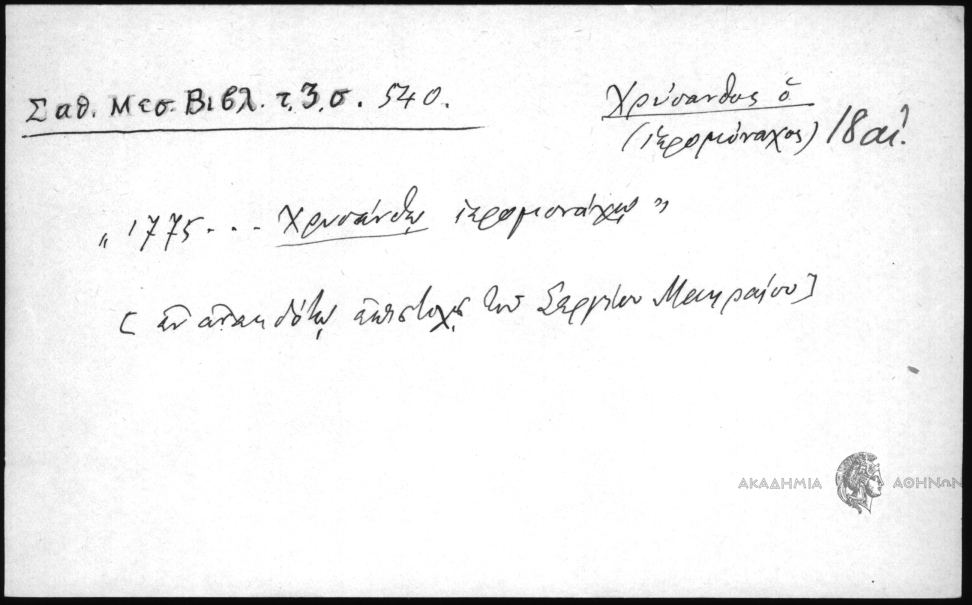 Σαθ. Μεσ. Βιβλ. τ. 3, σ. 540.
Χρύσανθος ὁ
(ἱερομόναχος) 18 αἰ.
„ 1775 . . . Χρυσάνθῳ ἱερομονάχῳ "
[ ἐν ἀνεκδότῳ ἐπιστολῇ τοῦ Σεργίου Μακραίου ]
ΑΚΑΔΗΜΙΑ ΑΘΗΝΩΝ